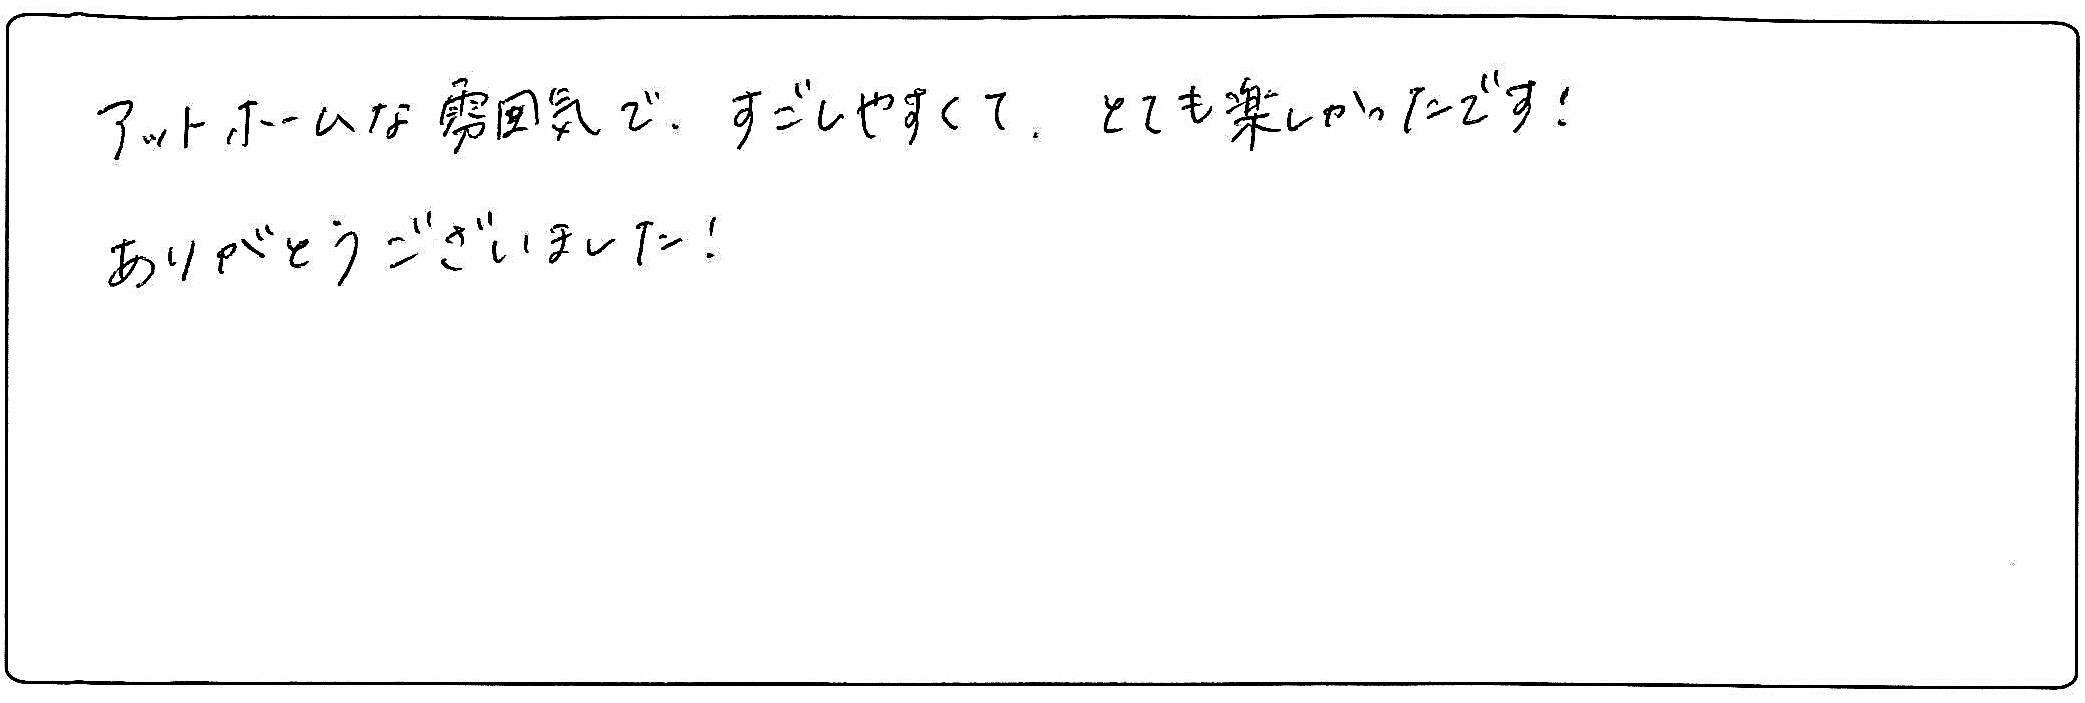 アットホームな雰囲気で、すごしやすくて、とても楽しかったです!
ありがとうございました!